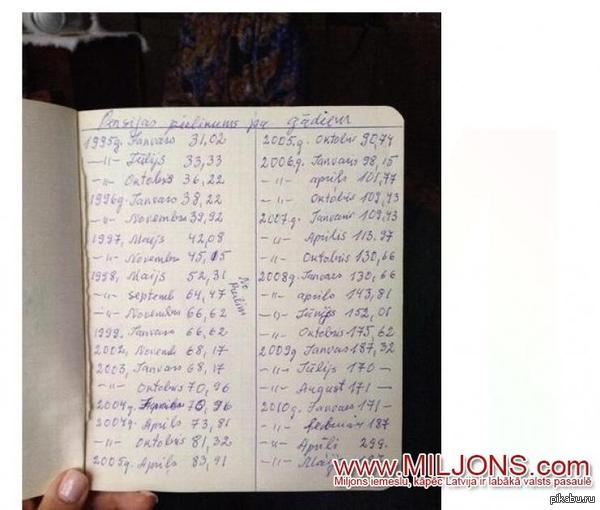 Pensijas pielikums pa gadiem
1995g. Janvars 31,02
-〃- Jūlijs 33,33
-〃- Oktobris 36,22
1996g. Janvars 38,22
-〃- Novembris 39,92
1997, Maijs 42,08
-〃- Novembris 45,15
1998, Maijs 52,31
-〃- Septemb 64,47
-〃- Novembris 66,62
1999. Janvars 66,62
2002, Novemb 68,17
2003, Janvars 68,17
-〃- Oktobris 70,96
2004g. 70,96
2004g. Aprīlis 73,81
-〃- Oktobris 81,32
2005g. Aprīlis 83,91
2005.g. Oktobris 90,74
2006g. Janvaris 98,15
-〃- aprīlis 101,77
-〃- Oktobris 109,43
2007.g. Janvaris 109,43
-〃- Aprīlis 113,97
-〃- Oktobris 130,66
2008g. Janvars 130,66
-〃- aprīlis 143,81
-〃- Jūnijs 152,01
-〃- Oktobris 175,62
2009g Janvars 187,32
-〃- Jūlijs 170 —
-〃- August 171 —
2010g. Janvars 171 —
-〃- 187
-〃- Aprīlī 299.
-〃- Maijs
www.MILJONS.com
Miljons iemeslu, kāpēc Latvija ir labākā valsts pasaulē
pikabu.ru